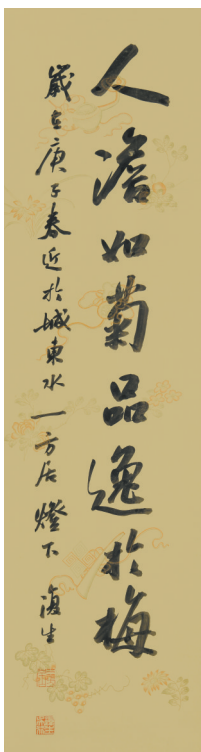 人澹如菊品逸於梅
歲在庚子春近於城東水一方居燈下 復生